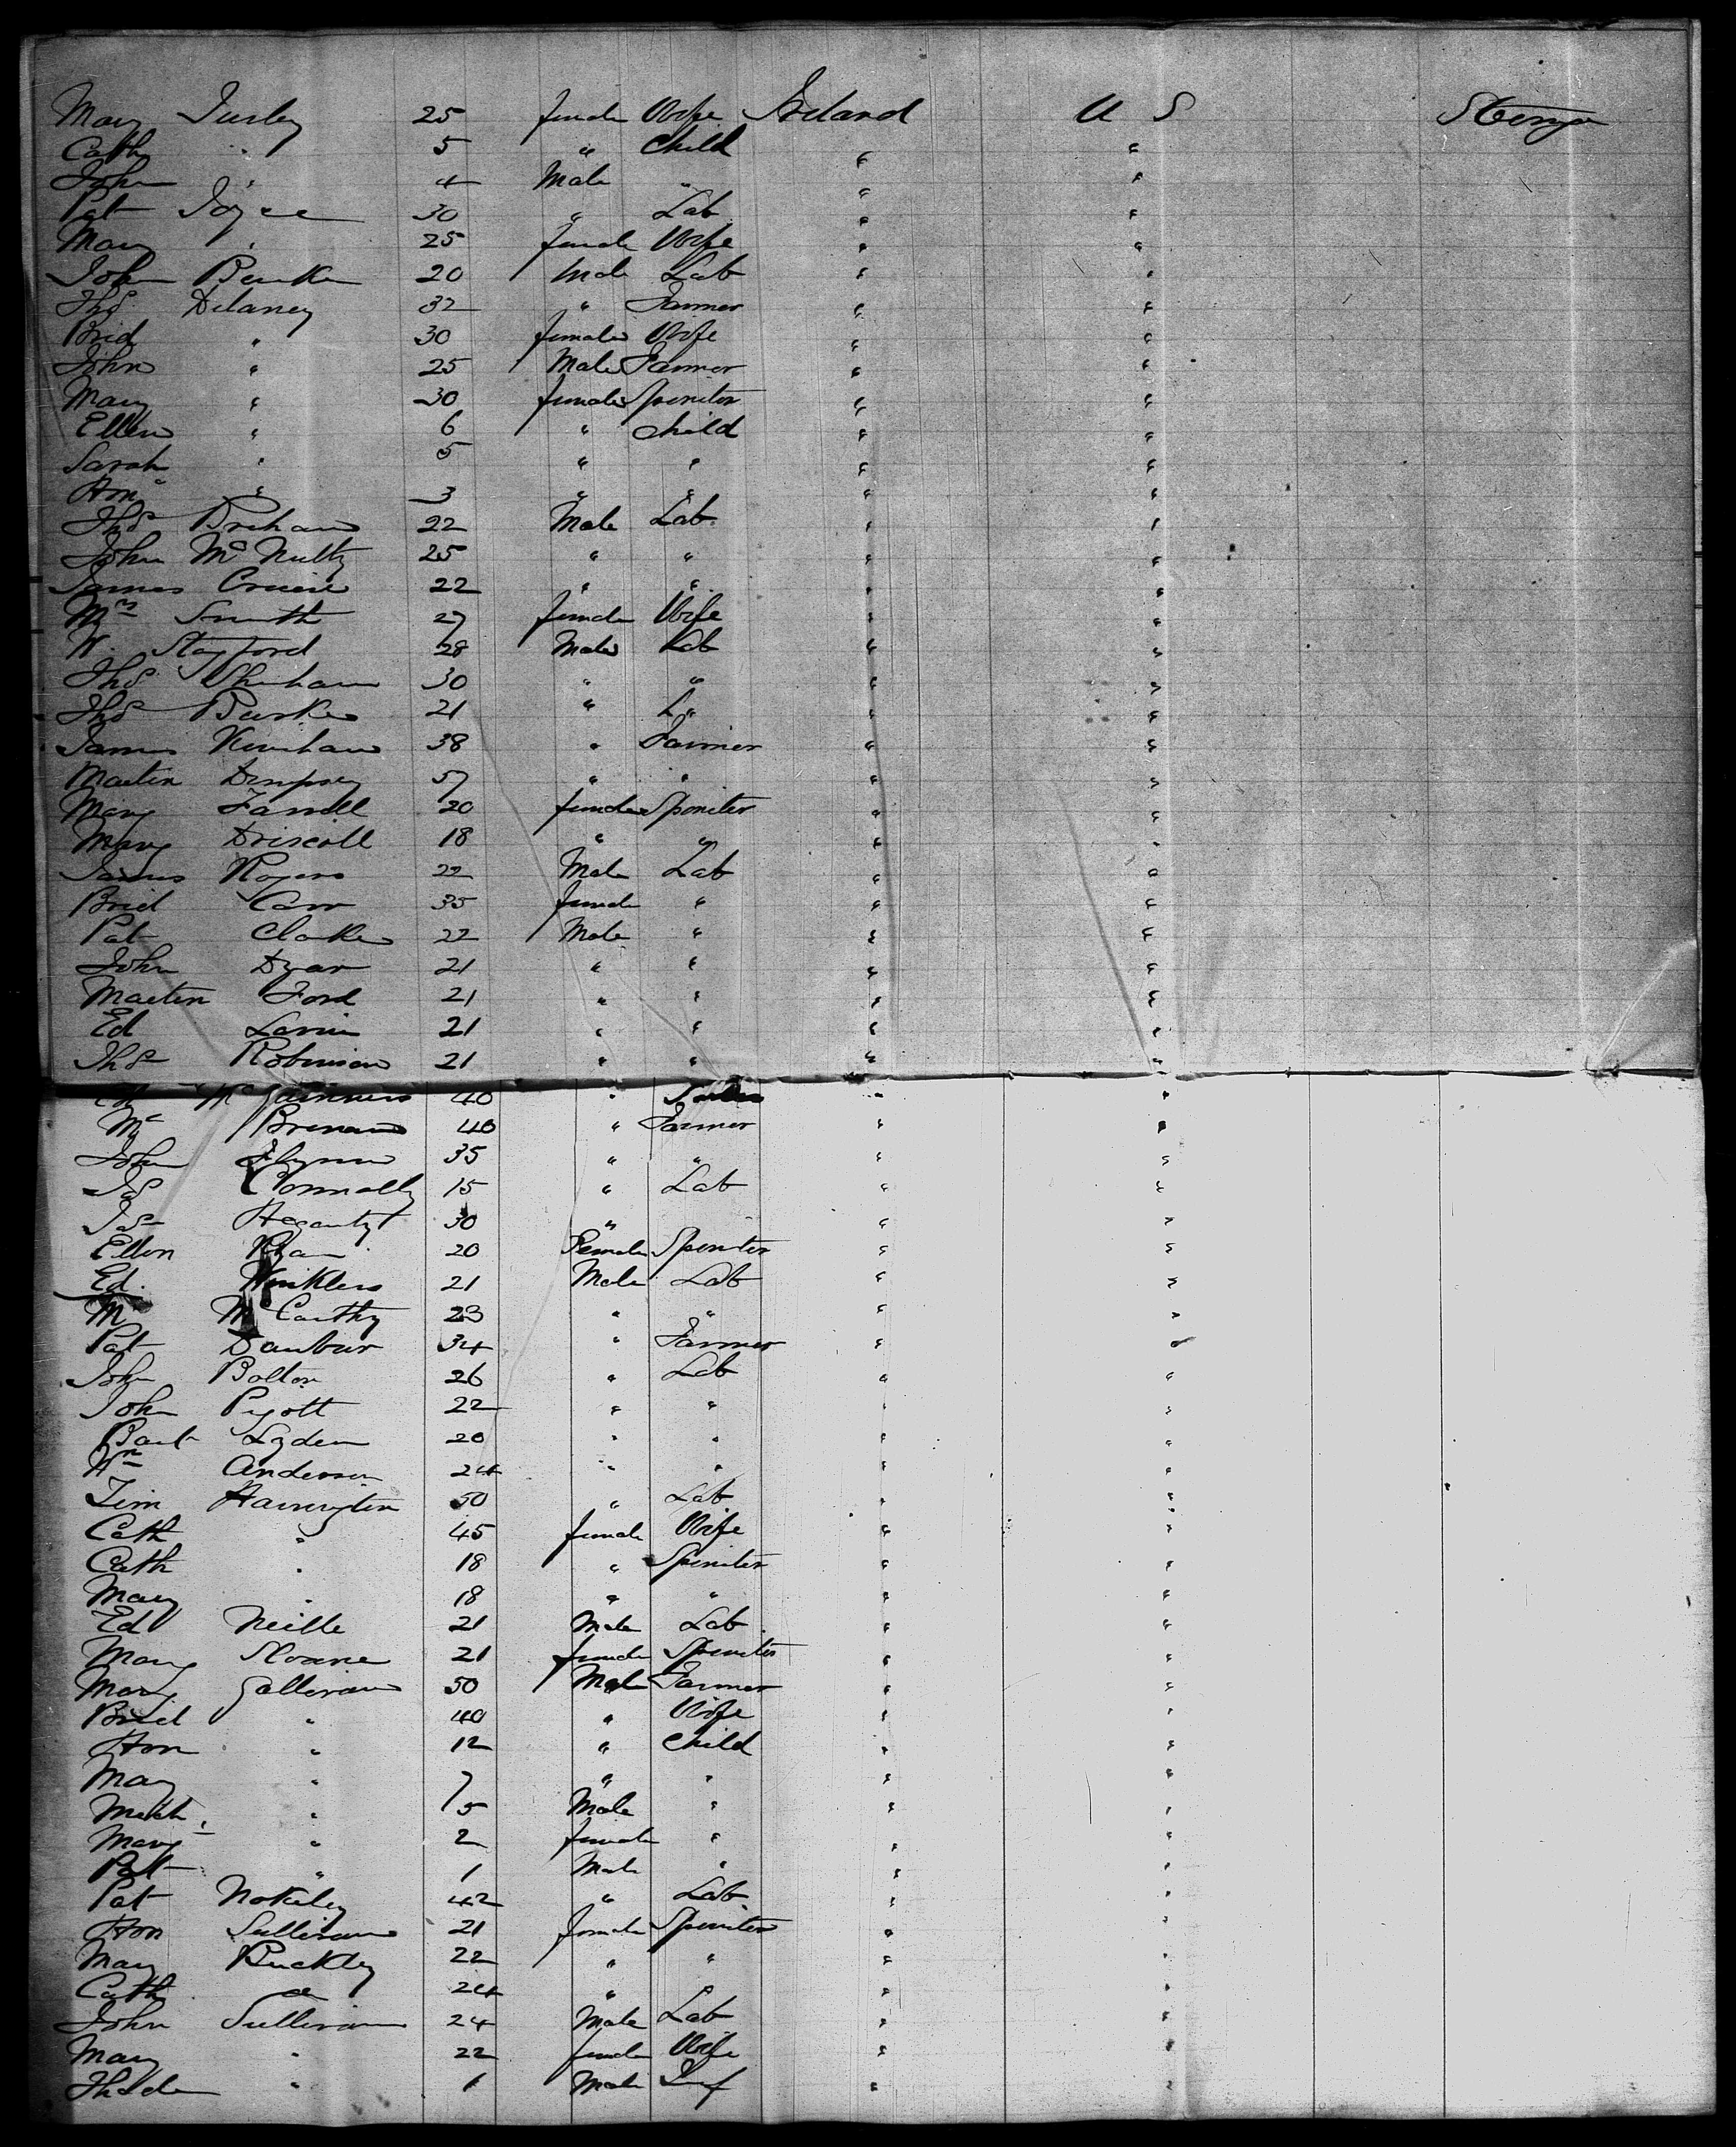 Mary Turley 25 female Wife Ireland U S Steerage
Cath " 5 " Child " "
John " 4 Male " " "
Pat Joyce 30 " Lab " "
Mary " 25 female Wife " "
John 20 Male Lab " "
Thos Delaney 32 " Farmer " "
Brid " 30 female Wife " "
John " 25 Male Farmer " "
Mary " 30 female Spinster " "
Ellen " 6 " Child " "
Sarah " 5 " " " "
Hon " 3 " " " "
Thos 22 Male Lab " "
John McNulty 25 " " " "
James Cruise 22 " " " "
Mrs Smith 27 female Wife " "
W. Stafford 28 Male Lab " "
Thos Shehan 30 " " " "
Thos Burke 21 " L " " "
James 38 " Farmer " "
Martin Dempsey 57 " " " "
Mary Farrell 20 female Spinster " "
Mary Driscoll 18 " " " "
James Rogers 22 Male Lab " "
Brid Carr 35 female " " "
Pat Clarke 22 Male " " "
John Dyar 21 " " " "
Martin Ford 21 " " " "
Ed Lavin 21 " " " "
Thos Robinson 21 " " " "
40 " " "
Mc Brenan 40 " Farmer " "
John Flynn 35 " " " "
Js Connolly 15 " Lab " "
Jas Hegarty 30 " " "
Ellen Ryan 20 Female Spinster " "
Ed. Winklers 21 Male Lab " "
M McCarthy 23 " " " "
Pat 34 " Farmer " "
John Bolton 26 " Lab " "
John Pyott 22 " " " "
Bart Lyden 20 " " " "
Wm Anderson 24 " " " "
Tim Harrington 50 " Lab " "
Cath " 45 female Wife " "
Cath " 18 " Spinster " "
Mary " 18 " " " "
Ed Neille 21 Male Lab " "
Mary Sloane 21 female Spinster " "
Mary Gallivan 50 Male Farmer " "
Brid " 40 " Wife " "
Hon " 12 " Child " "
Mary " 7 " " " "
Mich " 5 Male " " "
Mary " 2 female " " "
Pat " 1 Male " " "
Pat 42 " Lab " "
Hon Sullivan 21 female Spinster " "
Mary Buckley 22 " " " "
Cath 24 " " " "
John Sullivan 24 Male Lab " "
Mary " 22 female Wife " "
" 1 Male Inf " "